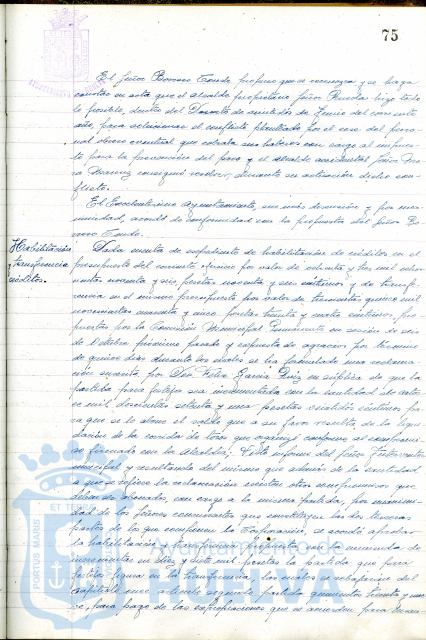 75
El Señor Borrero Conde, propone que se incorpore y se haga
constar en acta que el alcalde propietario Señor Rueda hizo todo
lo posible, dentro del Decreto de veintidós de Junio del corriente
año, para solucionar el conflicto planteado por el cese del perso-
nal obrero eventual que cobraba sus haberes con cargo al impues-
to para la prevención del paro y el alcalde accidental Señor
consiguió resolver, durante su actuación dicho con-
flicto.
El Excelentísimo Ayuntamiento, sin más discusión y por una-
nimidad, acordó de conformidad con la propuesta del Señor Bo-
rrero Conde.
Habilitación
y transferencia
créditos.
Dada cuenta de expediente de habilitación de créditos en el
presupuesto del corriente ejercicio por valor de ochenta y tres mil ocho-
cientas noventa y seis pesetas noventa y seis céntimos y de transfe-
rencia en el mismo presupuesto por valor de trescientas quince mil
novecientas cuarenta y cinco pesetas treinta y cuatro céntimos, pro-
puestos por la Comisión Municipal Permanente en sesión de seis
de Octubre próximo pasado y expuesto de agravios por término
de quince días durante los cuales se ha formulado una reclama-
ción suscrita por Don Félix García Ruiz en súplica de que la
partida para festejos sea incrementada con la cantidad de cator-
ce mil doscientas setenta y una pesetas céntimos pa-
ra que se le abone el saldo que a su favor resulta de la liqui-
dación de la corrida de toros que organizó conforme al compromi-
so firmado con la Alcaldía; Visto informe del Señor Interventor
municipal y resultando del mismo que además de la cantidad
a que se refiere la reclamación existen otros compromisos que
deben ser abonados, con cargo a la misma partida, por unanimi-
dad de los Señores concurrentes que constituyen las dos terceras
partes de los que componen la Corporación, se acordó aprobar
la habilitación y transferencia con la enmienda de
incrementar en diez y siete mil pesetas la partida que para
festejos figura en la transferencia, los cuales se rebajarían del
capítulo once, artículo segundo, partida quinientos treinta y nue-
ve, para pago de las expropiaciones que se acuerden para
PORTUS MARIS
ET TERRAE
Ayuntamiento de
HUELVA